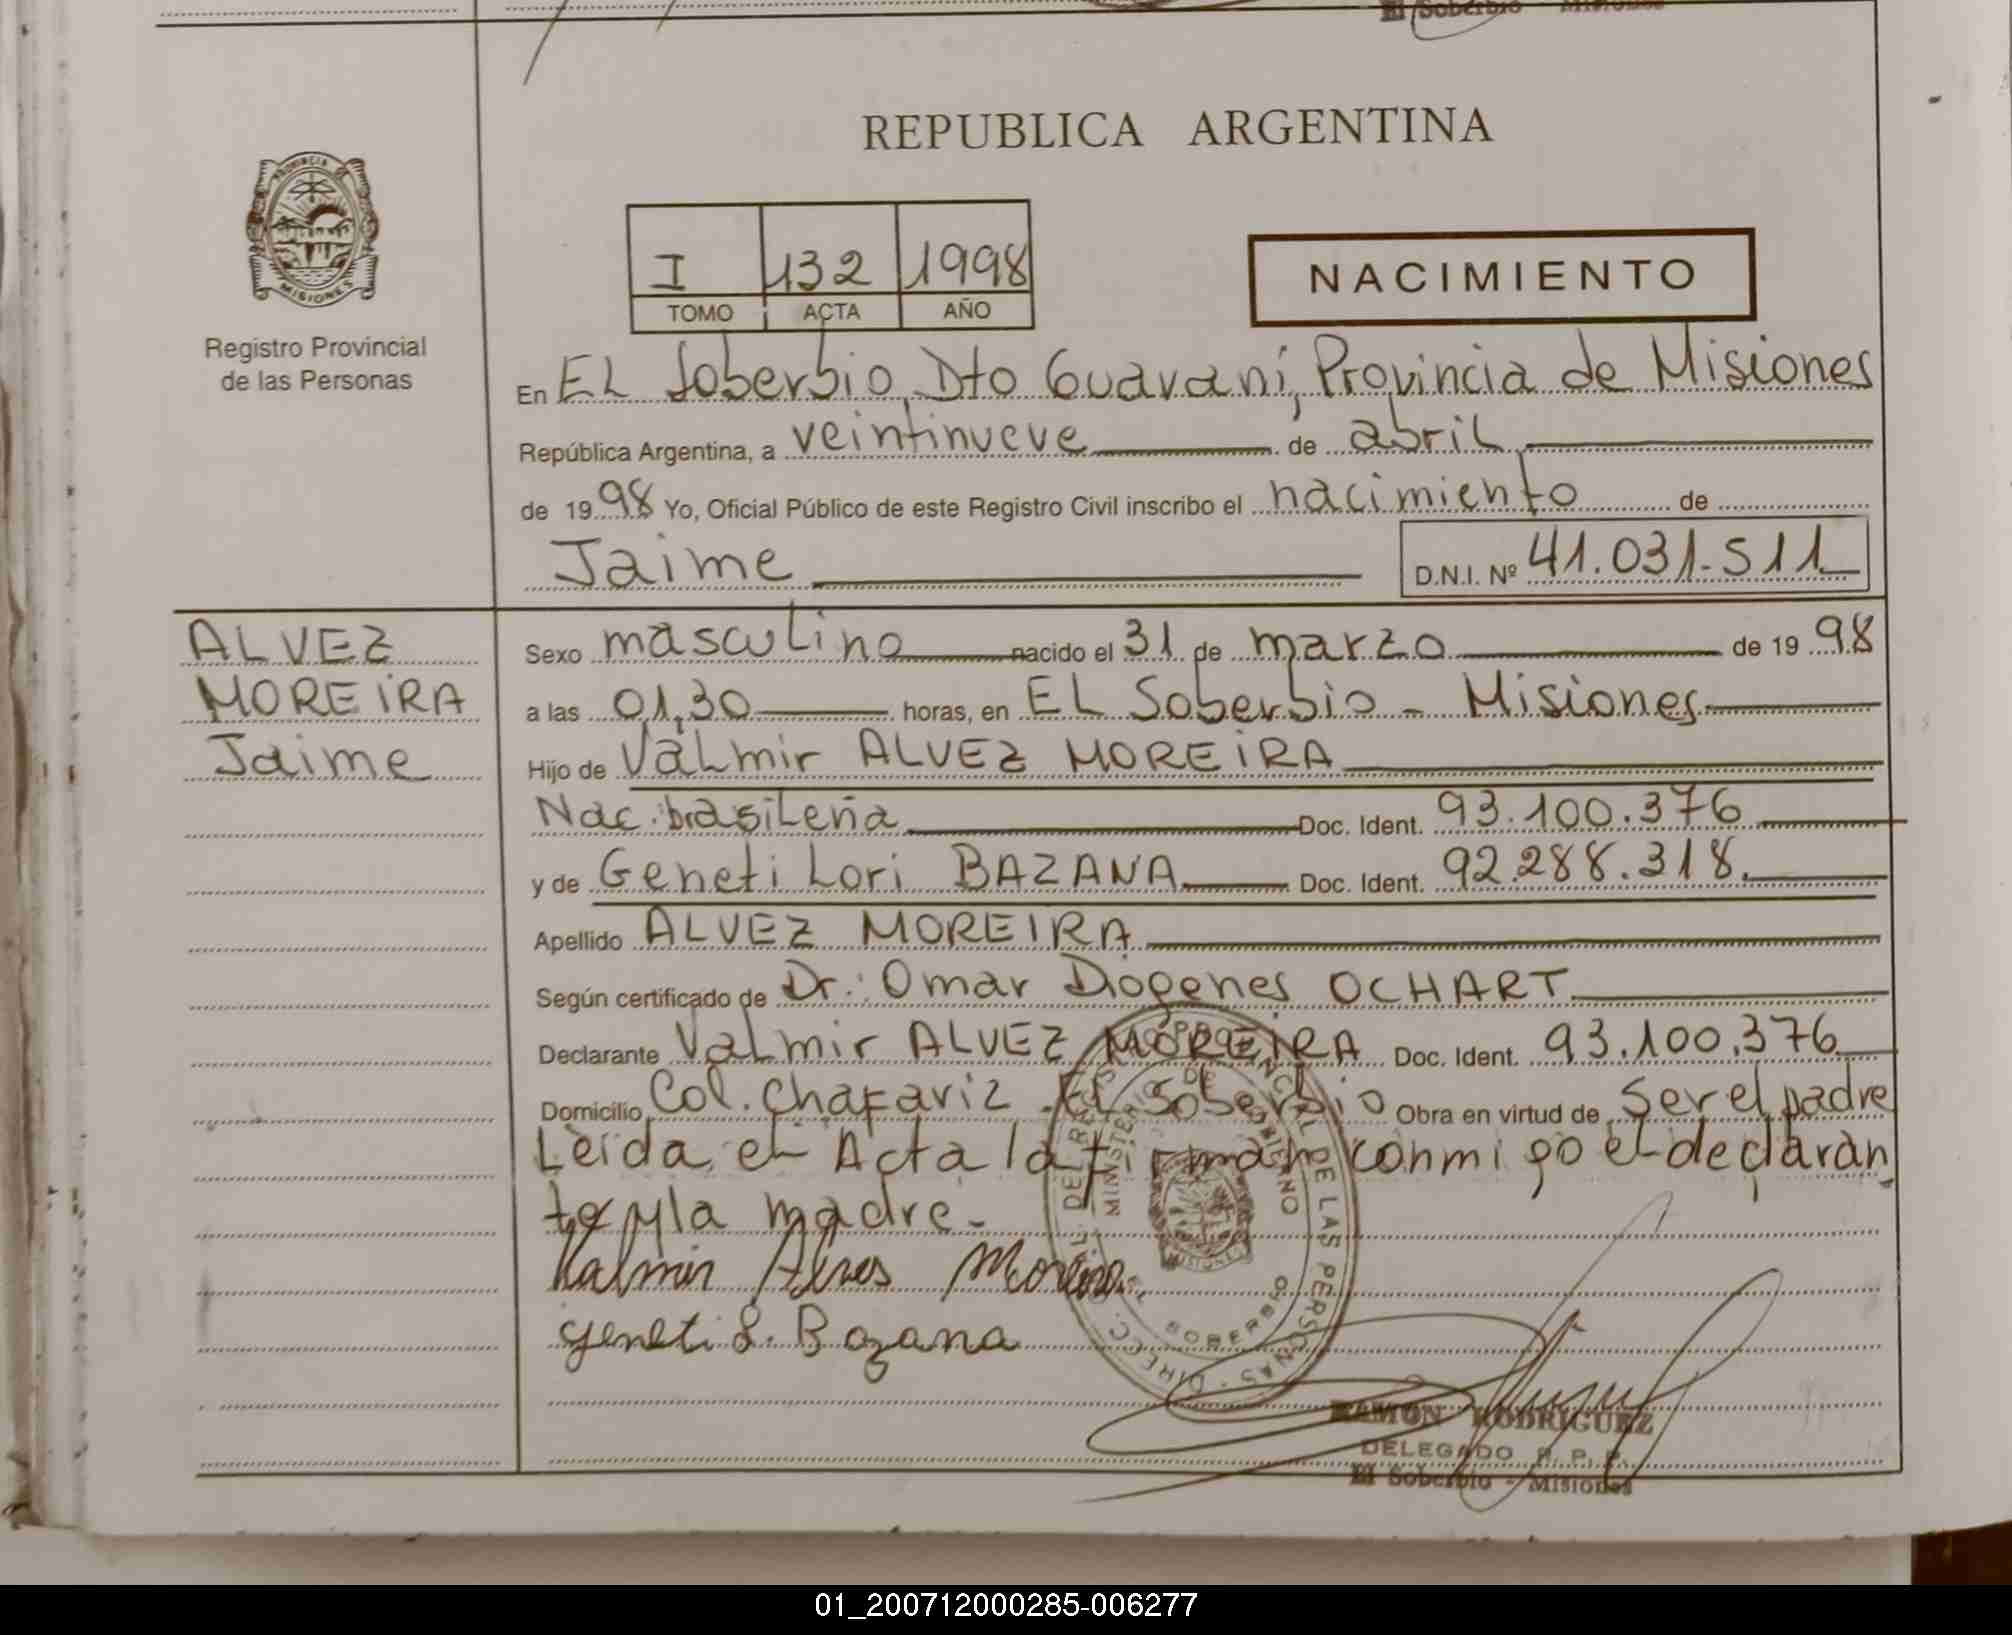 El Soberbio - Misiones
REPUBLICA ARGENTINA
PROVINCIA
MISIONES
Registro Provincial
de las Personas
I 132 1998
TOMO ACTA AÑO
NACIMIENTO
En EL Soberbio, Dto Guaraní, Provincia de Misiones
República Argentina, a veintinueve de abril
de 1998 Yo, Oficial Público de este Registro Civil inscribo el nacimiento de
Jaime D.N.I. Nº 41.031.511
ALVEZ
MOREIRA
Jaime
Sexo masculino nacido el 31 de marzo de 1998
a las 01,30 horas, en EL Soberbio - Misiones
Hijo de Valmir ALVEZ MOREIRA
Nac. brasileña Doc. Ident. 93.100.376
y de Geneti Lori BAZANA Doc. Ident. 92.288.318.
Apellido ALVEZ MOREIRA
Según certificado de Dr.: Omar Diógenes OCHART
Declarante Valmir ALVEZ MOREIRA Doc. Ident. 93.100.376
Domicilio Col. Chafariz - El Soberbio Obra en virtud de ser el padre
Leida el Acta la firman conmigo el declaran
te y la madre.-
Valmir Alves Moreira
Geneti L. Bazana
DIRECC. GRAL. DEL REGISTRO PROVINCIAL DE LAS PERSONAS
MINISTERIO DE GOBIERNO
MISIONES
EL SOBERBIO
RAMON RODRIGUEZ
DELEGADO R. P. P.
El Soberbio - Misiones
01_200712000285-006277